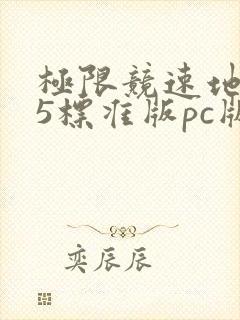 極限競速地
5標准版pc版
奕辰辰